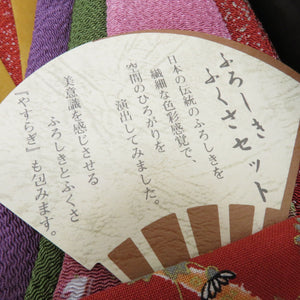 ふろしき
ふくさセット
日本の伝統のふろしきを
繊細な色彩感覚で、
空間のひろがりを
演出してみました。
美意識を感じさせる
ふろしきとふくさ
『やすらぎ』も包みます。